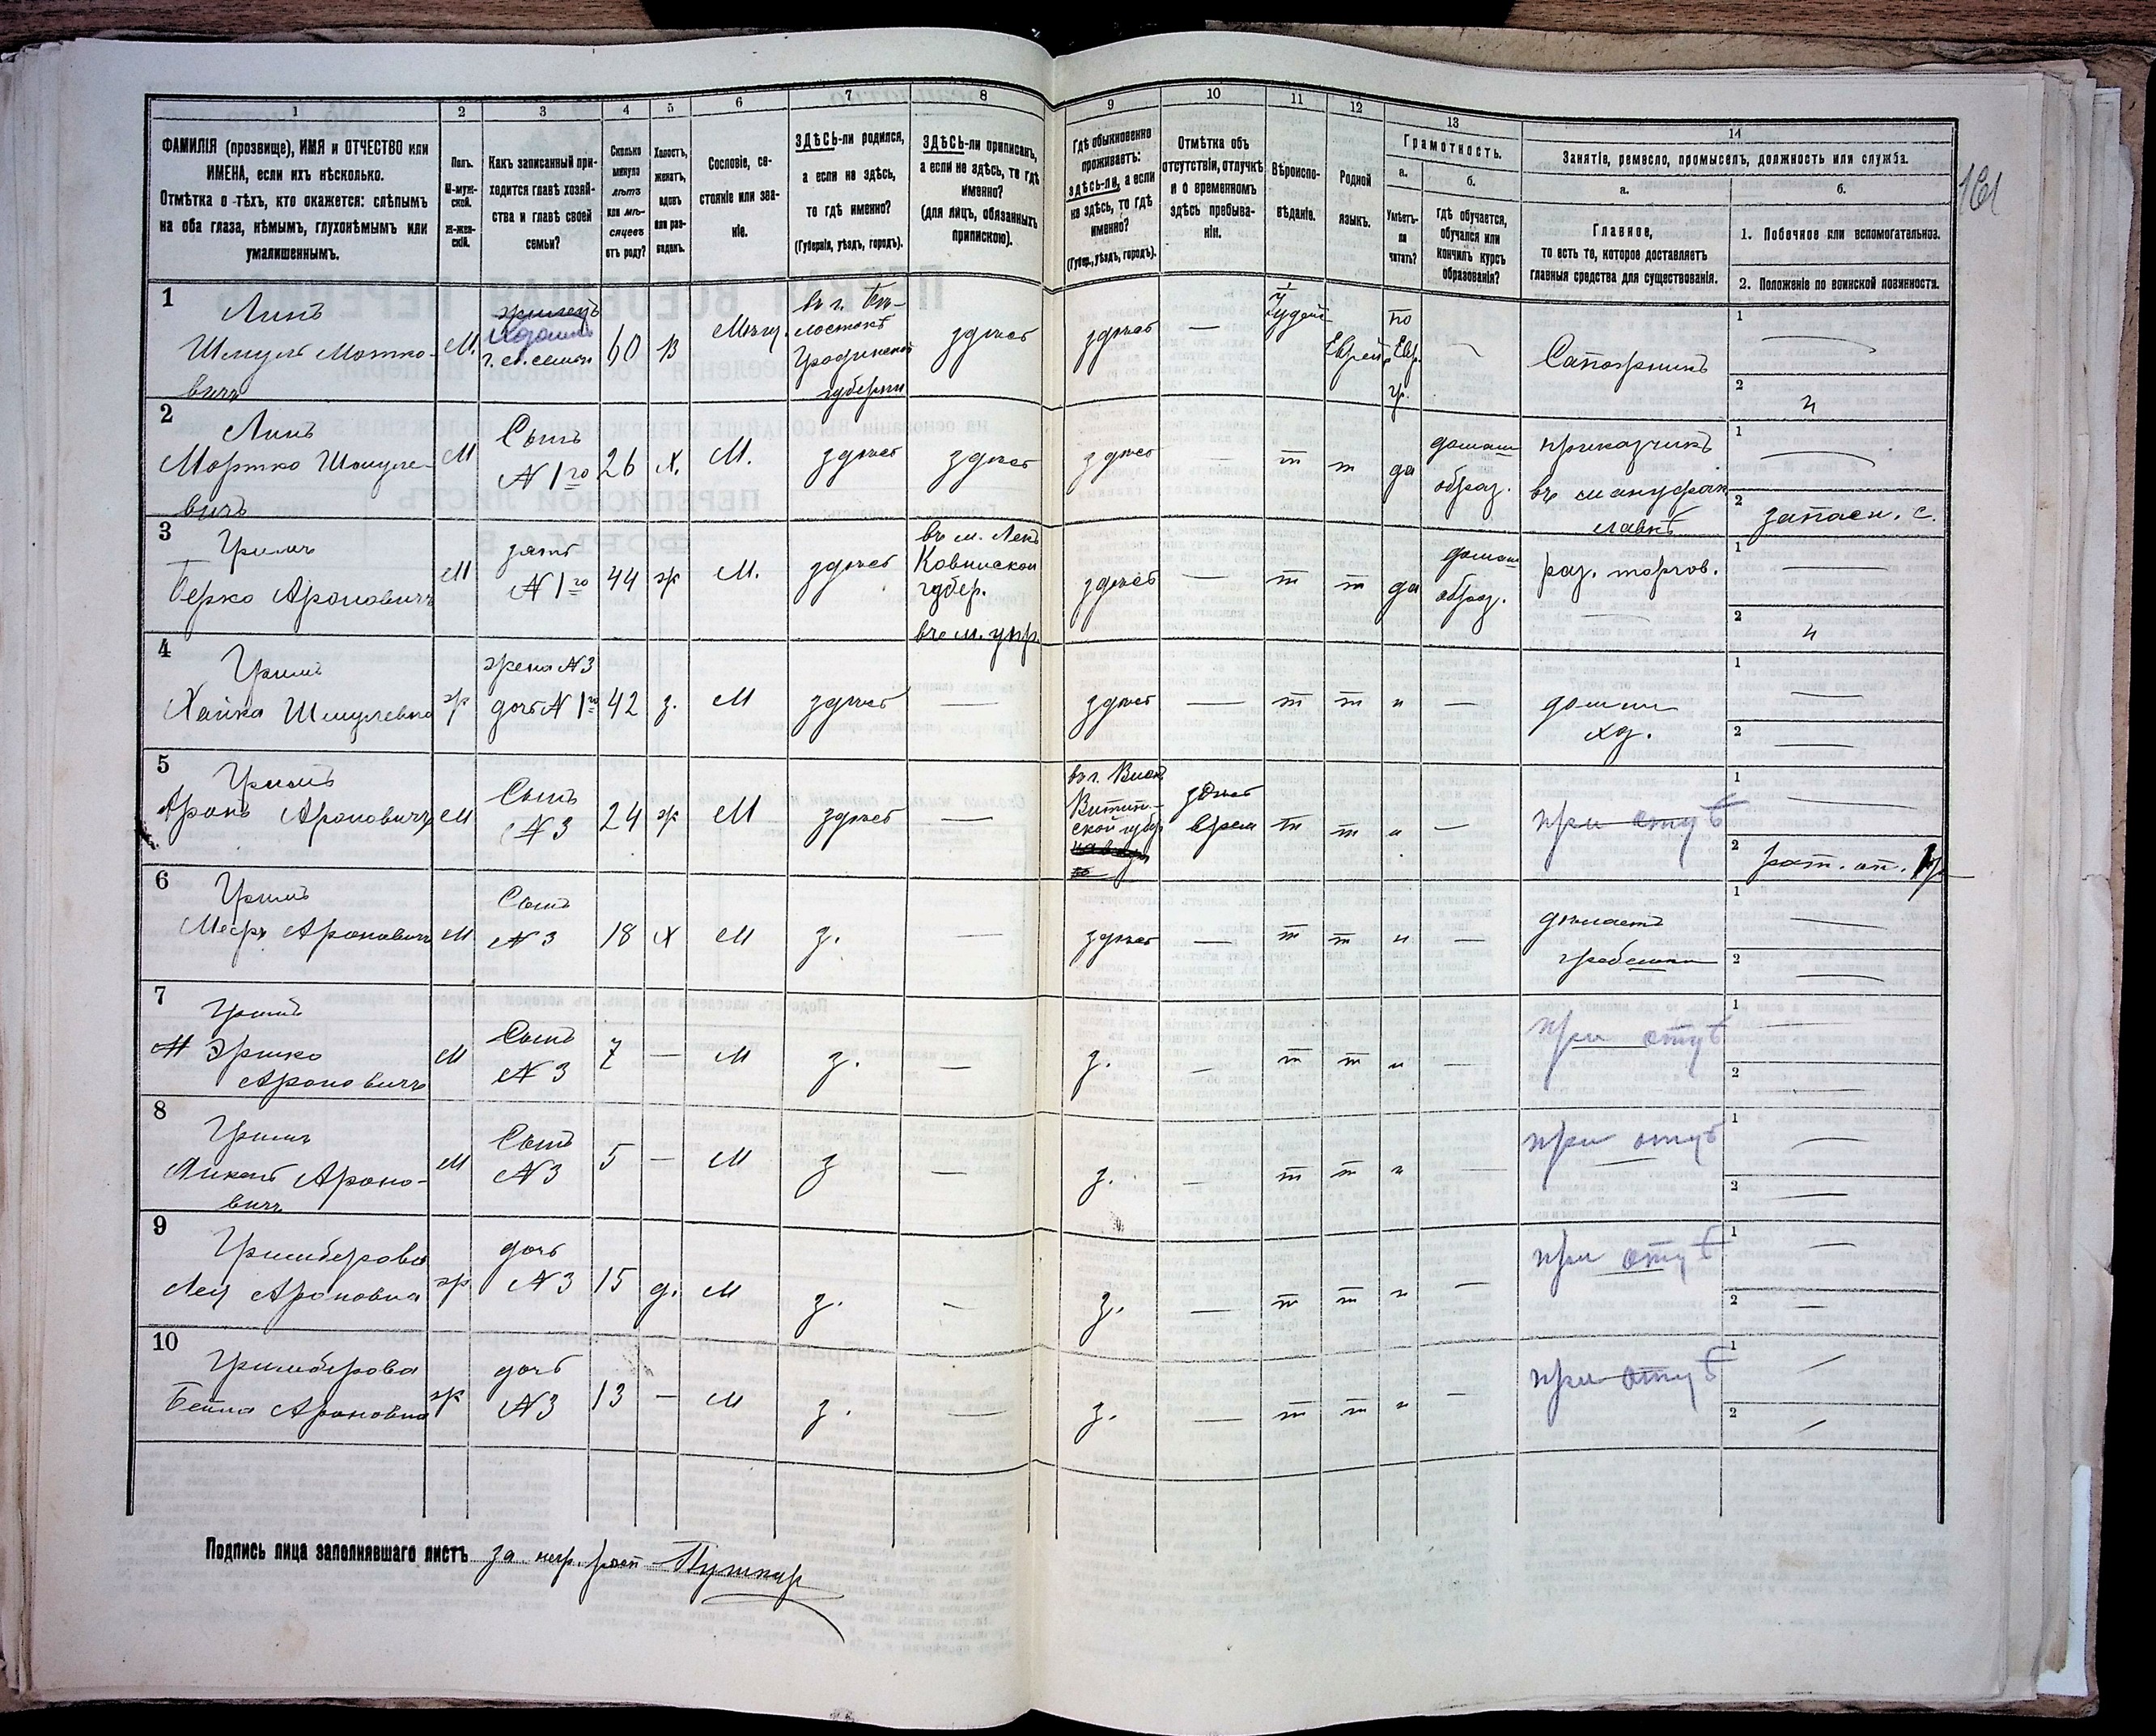 161
1 2 3 4 5 6 7 8 9 10 11 12 13 14
ФАМИЛІЯ (прозвище), ИМЯ и ОТЧЕСТВО или
ИМЕНА, если ихъ нѣсколько.
Отмѣтка о тѣхъ, кто окажется: слѣпымъ
на оба глаза, нѣмымъ, глухонѣмымъ или
умалишеннымъ.
Полъ.
М-муж-
ской.
Ж-жен-
скій.
Какъ записанный при-
ходится главѣ хозяй-
ства и главѣ своей
семьи?
Сколько
минуло
лѣтъ
или мѣ-
сяцевъ
отъ роду?
Холостъ,
женатъ,
вдовъ
или раз-
веденъ.
Сословіе, со-
стояніе или зва-
ніе.
ЗДѢСЬ-ли родился,
а если не здѣсь,
то гдѣ именно?
(Губернія, уѣздъ, городъ).
ЗДѢСЬ-ли приписанъ,
а если не здѣсь, то гдѣ
именно?
(для лицъ, обязанныхъ
припискою).
Гдѣ обыкновенно
проживаетъ:
здѣсь-ли, а если
не здѣсь, то гдѣ
именно?
(Губер., уѣздъ, городъ).
Отмѣтка объ
отсутствіи, отлучкѣ
и о временномъ
здѣсь пребыва-
ніи.
Вѣроиспо-
вѣданіе.
Родной
языкъ.
Грамотность.
а.
Умѣетъ-
ли
читать?
б.
гдѣ обучается,
обучался или
кончилъ курсъ
образованія?
Занятіе, ремесло, промыселъ, должность или служба.
а.
Главное,
то есть то, которое доставляетъ
главныя средства для существованія.
б.
1. Побочное или вспомогательное.
2. Положеніе по воинской повинности.
1
Линъ
Шмуль Мотко-
вичъ
М.
г. св. семьи
60
В
Мѣщ.
въ г. Бѣ-
лостокѣ
Гродненской
губерніи
здѣсь
здѣсь
—
Іудей
Еврей
по
Евр.
гр.
—
Сапожникъ
1 —
2 н
2
Линъ
Мортко Шмуле-
вичъ
М
Сынъ
№ 1го
26
Х.
М.
здѣсь
здѣсь
здѣсь
—
т
т
да
домаш
образ.
приказчикъ
въ мануфак
лавкѣ
1 —
2 запасн. с.
3
Берко Ароновичъ
М
зять
№ 1го
44
ж
М.
здѣсь
Ковниской
губер.
здѣсь
—
т
т
да
домаш
образ.
раз. торгов.
1 —
2 н
4
Хайка Шмулевна
ж
жена № 3
дочь № 1го
42
з.
М
здѣсь
—
здѣсь
—
т
т
н
—
1 —
2 —
5
Аронъ Ароновичъ
М
Сынъ
№ 3
24
ж
М
здѣсь
—
Витеп-
ской губер
здѣсь
врем
т
т
н
—
при отцѣ
1 —
2
6
Ароновичъ
М
Сынъ
№ 3
18
Х
М
з.
—
здѣсь
—
т
т
н
—
дѣлаетъ
гребешки
1 —
2 —
7
Эршко
Ароновичъ
М
Сынъ
№ 3
7
—
М
з.
—
з.
—
т
т
н
—
при отцѣ
1 —
2 —
8
Янкель Ароно-
вичъ
М
Сынъ
№ 3
5
—
М
з
—
з.
—
т
т
н
—
при отцѣ
1 —
2 —
9
Лея Ароновна
ж
дочь
№ 3
15
д.
М
з.
—
з.
—
т
т
н
—
при отцѣ
1 —
2 —
10
Бейла Ароновна
ж
дочь
№ 3
13
—
М
з.
—
з.
—
т
т
н
—
при отцѣ
1 —
2 —
Подпись лица заполнявшаго листъ за негр. расп